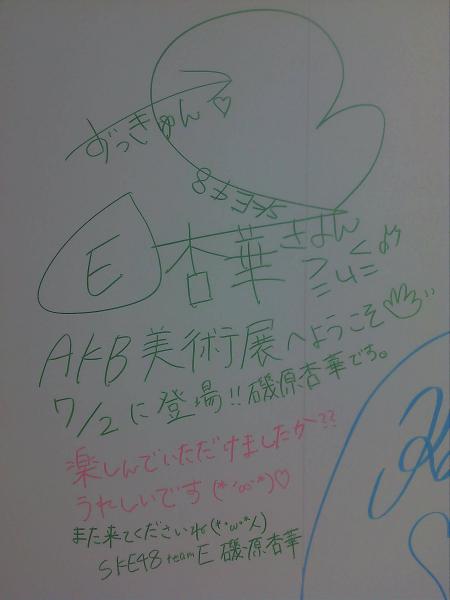 ずっきゅん♡
SKE48
E
杏華
きょん
AKB美術展へようこそ
7/2に登場!!磯原杏華です。
楽しんでいただけましたか??
うれしいです(*´ω`*)♡
また来てくださいね(*´ω`*人)
SKE48 teamE 磯原杏華